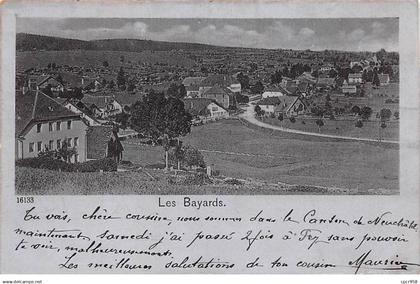 Les Bayards.
16133
Tu vois, chère cousine, nous sommes dans le Canton de Neuchâtel
maintenant, Samedi j'ai passé 2 fois à Fr sans pouvoir
te voir, malheureusement
Les meilleures salutations de ton cousin Maurice
www.delcampe.net cpcp958